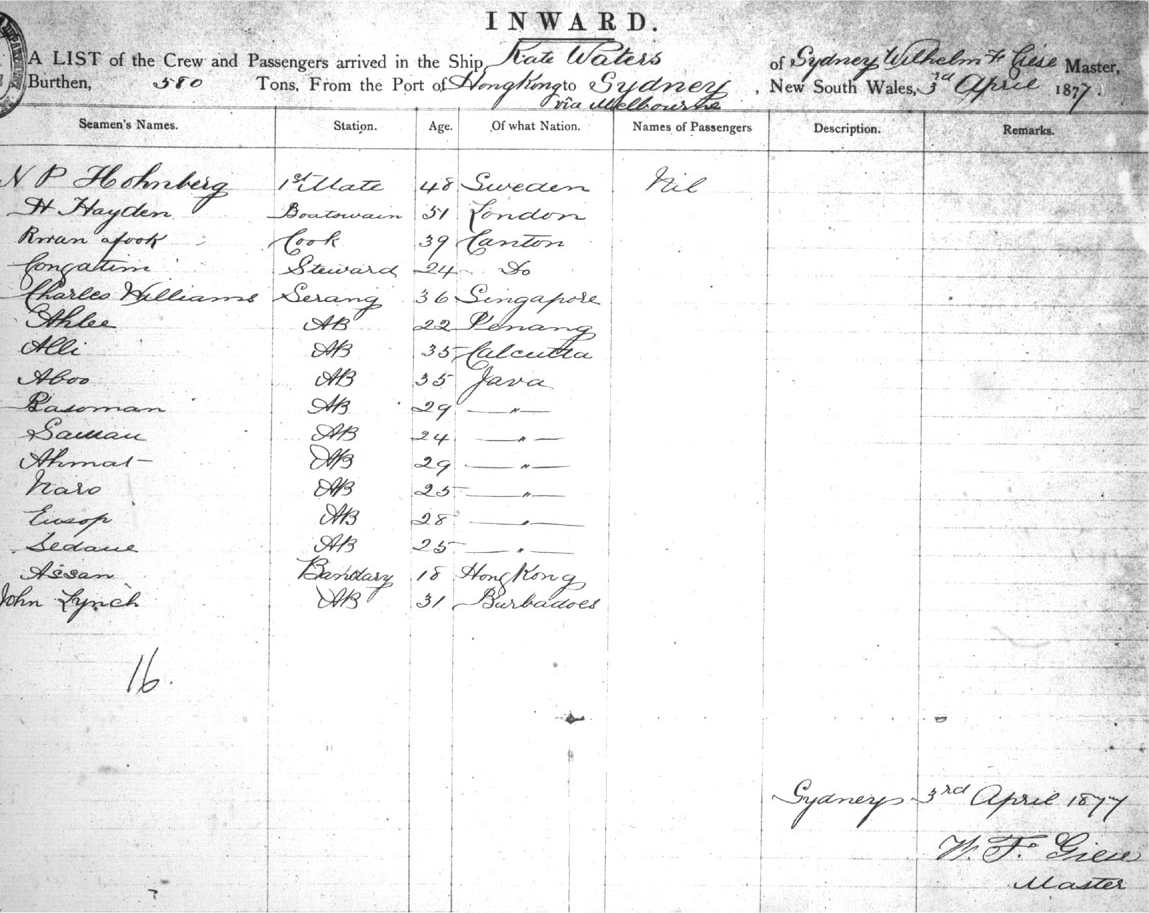 INWARD.
A LIST of the Crew and Passengers arrived in the Ship Kate Waters of Sydney Wilhelm F Giese Master,
Burthen, 580 Tons, From the Port of HongKong to Sydney, New South Wales, 3rd April 1877.
via Melbourne
Seamen's Names. Station. Age. Of what Nation. Names of Passengers Description. Remarks.
N P Hohnberg 1st Mate 48 Sweden Nil
H Hayden Boatswain 51 London
Kwan afook Cook 39 Canton
Congatim Steward 24 Do
Charles Williams Serang 36 Singapore
Ahlee AB 22 Penang
Alli AB 35 Calcutta
Aboo AB 35 Java
Rasoman AB 29 — „ —
Saman AB 24 — „ —
Ahmat AB 29 — „ —
Naro AB 25 — „ —
Eusop AB 28 — „ —
Sedane AB 25 — „ —
Assan Bandary 18 HongKong
John Lynch AB 31 Barbadoes
16.
Sydney 3rd April 1877
W. F. Giese
Master